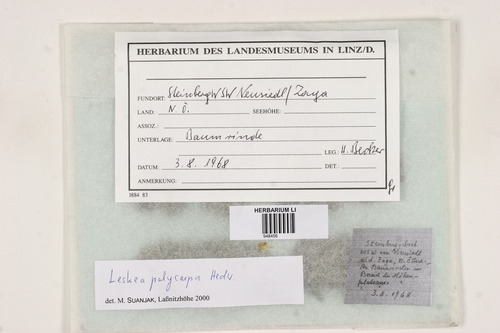 HERBARIUM DES LANDESMUSEUMS IN LINZ/D.
FUNDORT: Steinberg WSW Neusiedl/Zaya
LAND: N.Ö. SEEHÖHE:
ASSOZ.:
UNTERLAGE: Baumrinde
LEG.: H. Becker
DATUM: 3.8.1968 DET.:
ANMERKUNG:
1884 83
HERBARIUM LI
948456
Leskea polycarpa Hedw.
det. M. SUANJAK, Laßnitzhöhe 2000
WSW von Neusiedl
a.d. Zaya, N.Öster.
3.8.1968